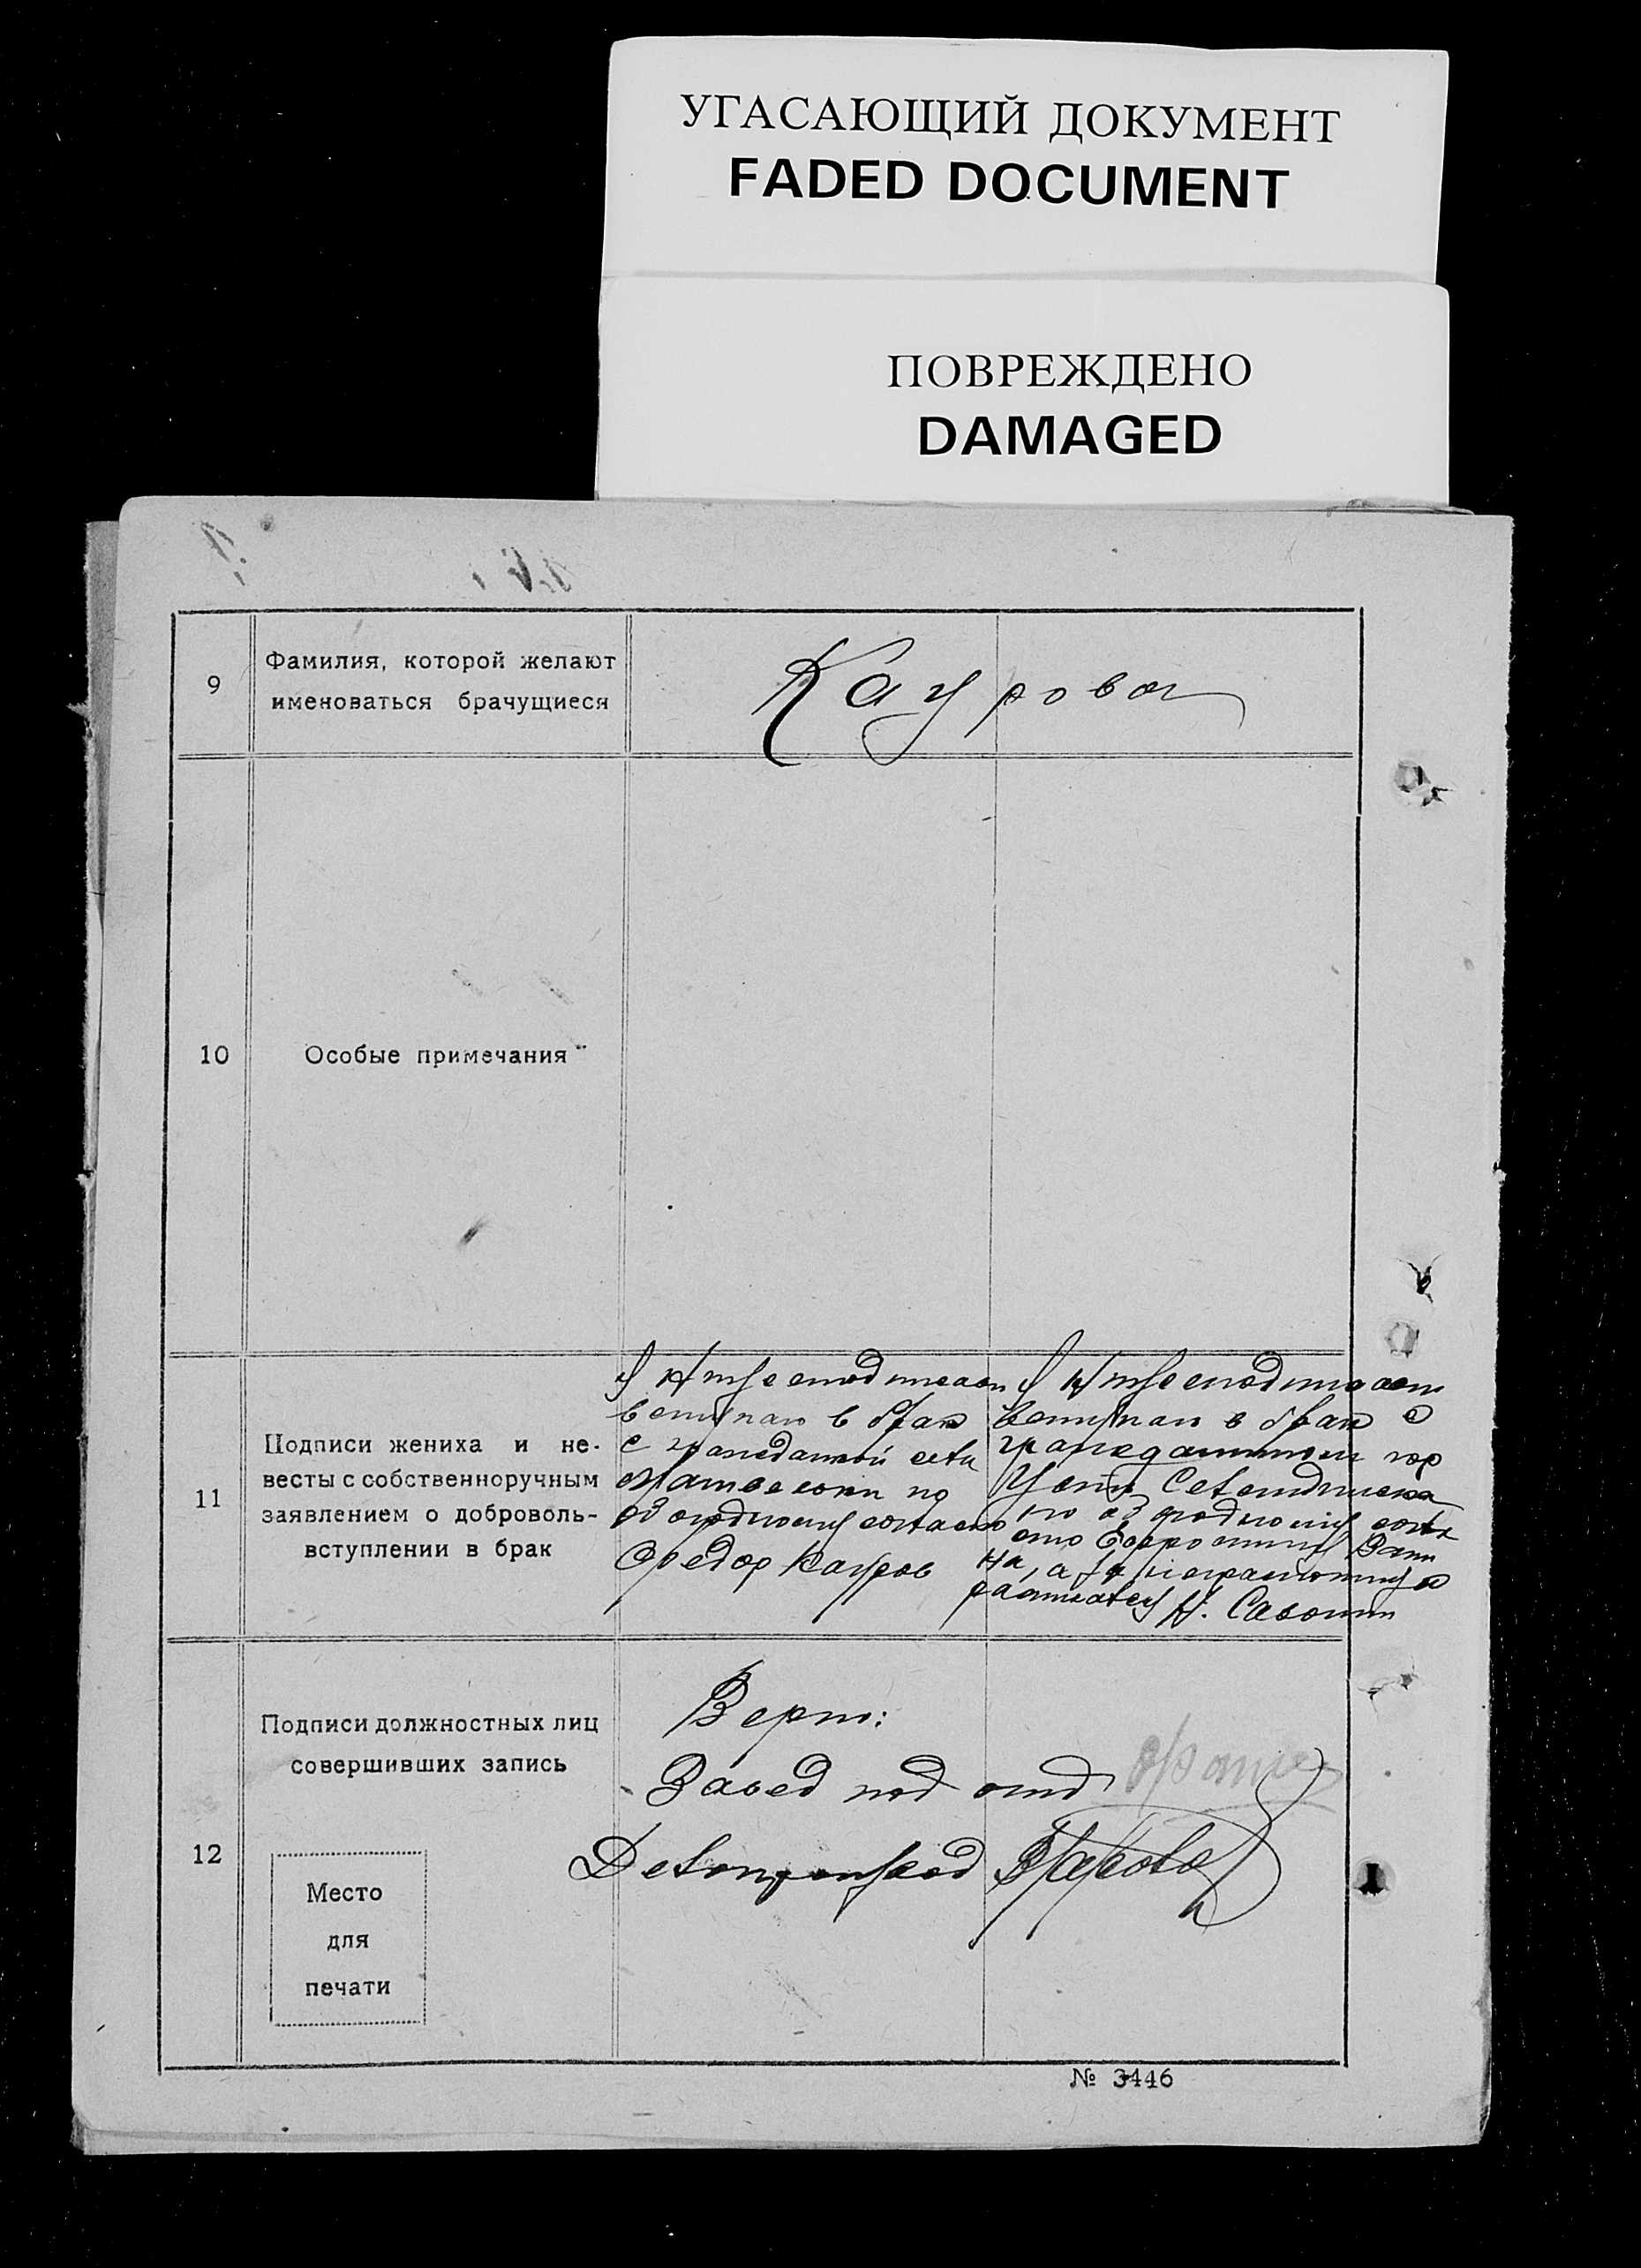 УГАСАЮЩИЙ ДОКУМЕНТ
FADED DOCUMENT
ПОВРЕЖДЕНО
DAMAGED
9
Фамилия, которой желают
именоваться брачущиеся
Каурова
10
Особые примечания
11
Подписи жениха и не-
весты с собственноручным
заявлением о доброволь-
вступлении в брак
Я Нижеподписав
вступаю в брак
с гражданкой села
по
обоюдному согласию
Федор Кауров
Я Нижеподписав
вступаю в брак с
гражданином гор
по обоюдному согла
а за неграмотную
Н. Савонин
12
Подписи должностных лиц
совершивших запись
Место
для
печати
Верно:
Завед под отд
Делопроизвод
№ 3446